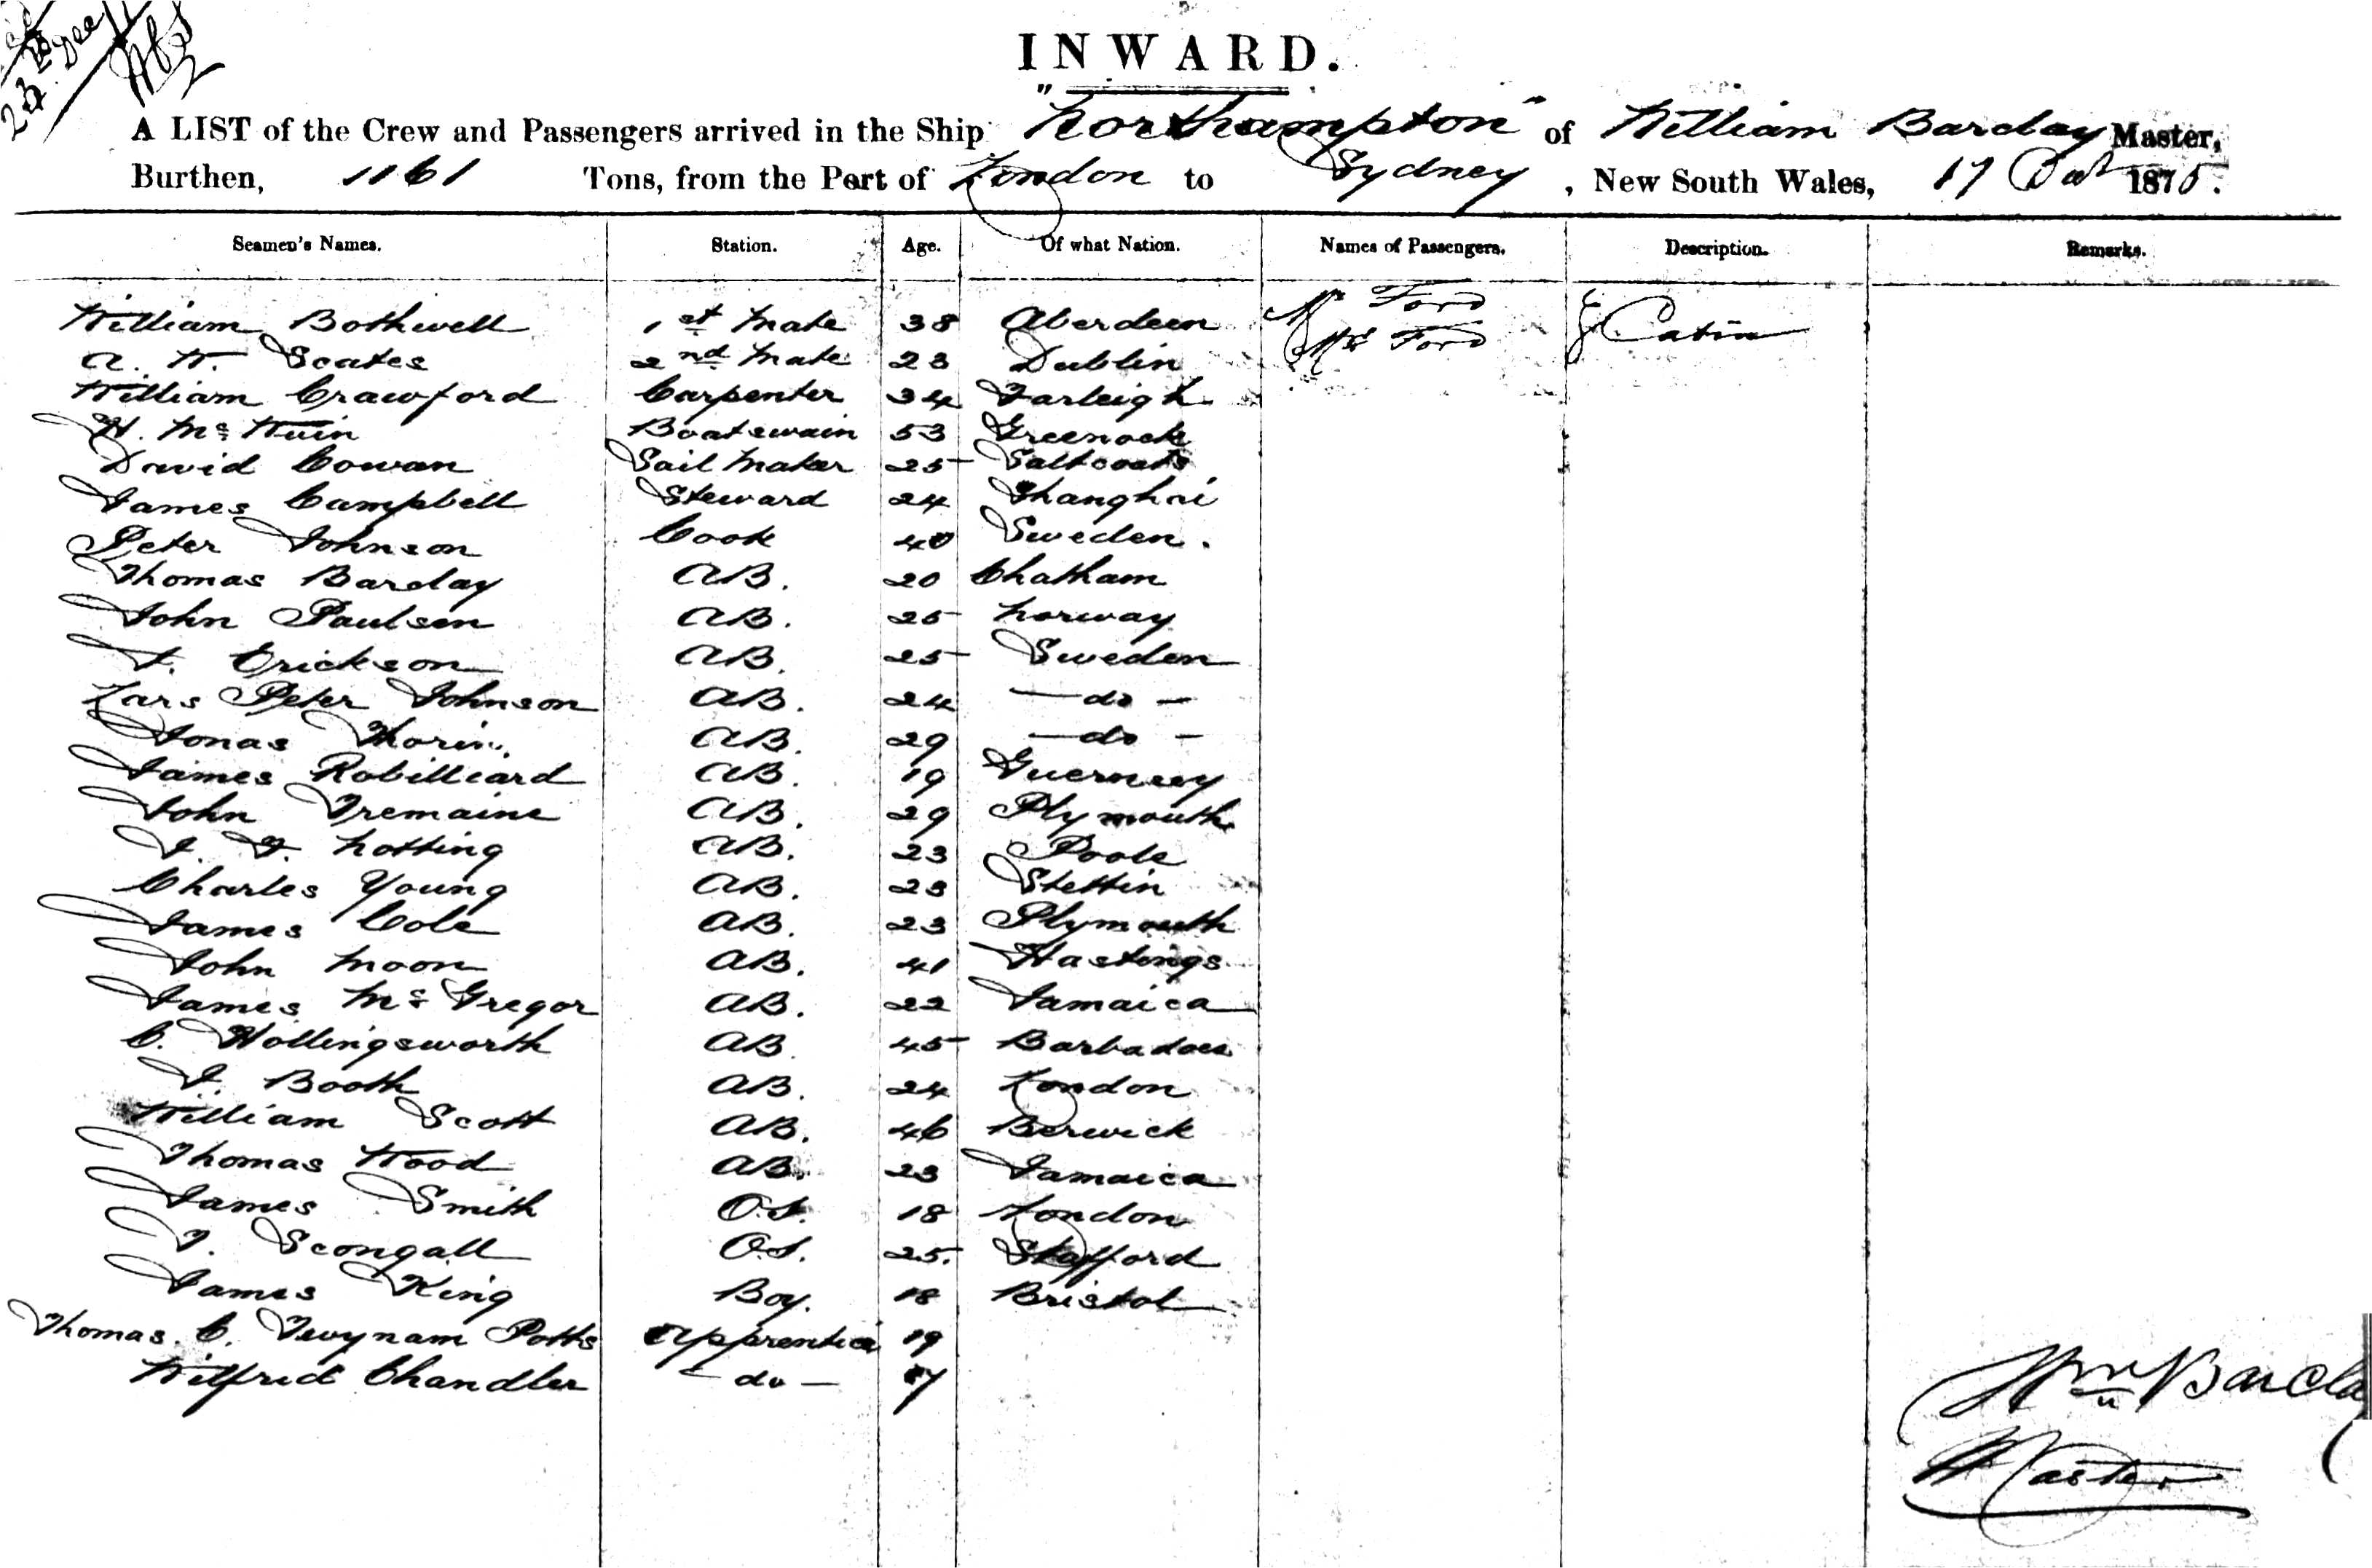 24 Dec
INWARD.
A LIST of the Crew and Passengers arrived in the Ship "Northampton" of William Barclay Master,
Burthen, 1161 Tons, from the Port of London to Sydney, New South Wales, 17 Oct 1875.
Seamen's Names. Station. Age. Of what Nation. Names of Passengers. Description. Remarks.
William Bothwell 1st Mate 38 Aberdeen Mr Ford Cabin
A. W. Scates 2nd Mate 23 Dublin Mrs Ford
William Crawford Carpenter 34 Farleigh
H. Mc Boatswain 53 Greenock
David Cowan Sail Maker 25 Saltcoats
James Campbell Steward 24 Shanghai
Peter Johnson Cook 40 Sweden.
Thomas Barclay AB. 20 Chatham
John Paulsen AB. 25 Norway
Erickson AB. 25 Sweden
Lars Peter Johnson AB. 24 — do —
Jonas Thorin. AB. 29 — do —
James Robilliard AB. 19 Guernsey
John Tremaine AB. 29 Plymouth
Notting AB. 23 Poole
Charles Young AB. 23 Stettin
James Cole AB. 23 Plymouth
John Moon AB. 41 Hastings
James Mc Gregor AB. 22 Jamaica
C. Hollingsworth AB. 45 Barbadoes
J. Booth AB. 24 London
William Scott AB. 46 Berwick
Thomas Wood AB. 23 Jamaica
James Smith O.S. 18 London
T. Scongall O.S. 25. Stafford
James King Boy. 18 Bristol
Thomas. C. Twynam Potts Apprentice 19
Wilfrid Chandler — do — 17
Wm Barcla
Master